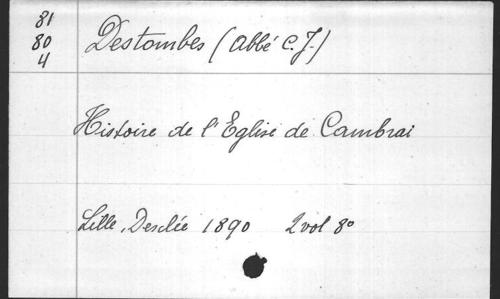 81
80
4
Destombes (Abbé C.J.)
Histoire de l'Eglise de Cambrai
Lille, Desclée 1890 2 vol 8°